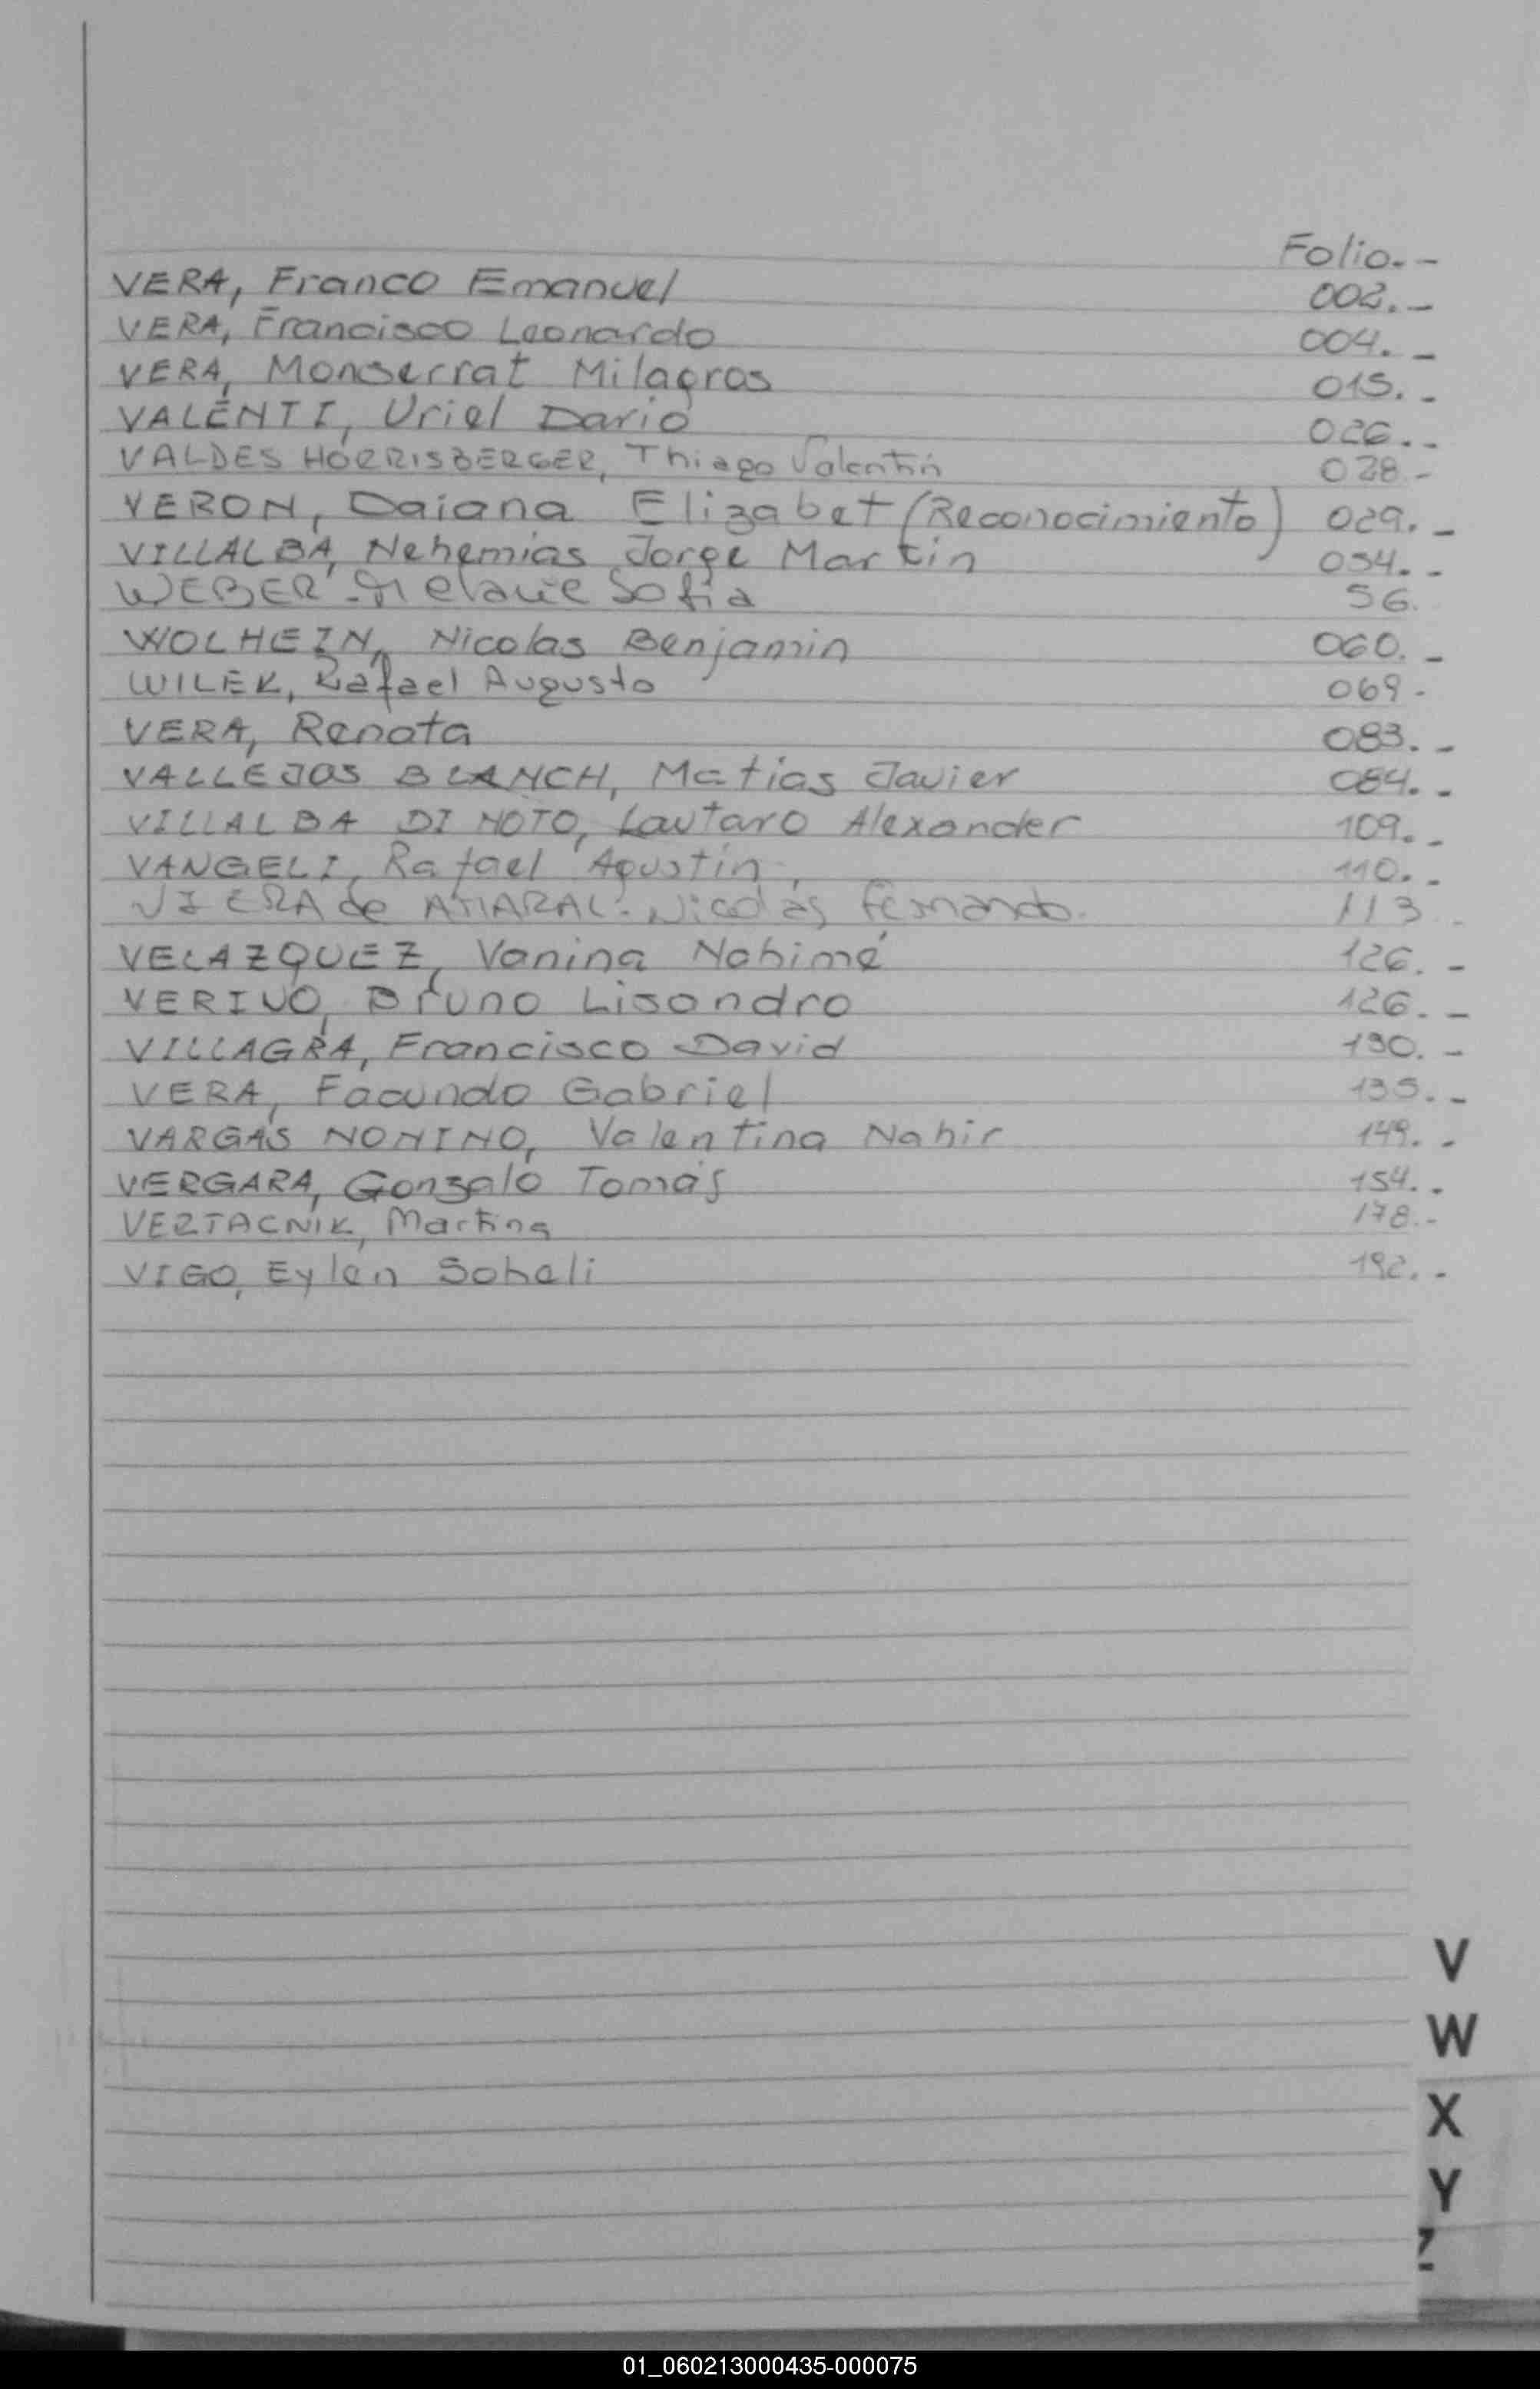 Folio.-
VERA, Franco Emanuel 002.-
VERA, Francisco Leonardo 004.-
VERA, Monserrat Milagros 015.-
VALENTI, Uriel Dario 026.-
VALDES HORRISBERGER, Thiago Valentín 028-
VERON, Daiana Elizabet (Reconocimiento) 029.-
VILLALBA, Nehemias Jorge Martin 054.-
WEBER Melanie Sofia 56.
WOLHEIN, Nicolas Benjamin 060.-
WILEK, Rafael Augusto 069-
VERA, Renata 083.-
VALLEJOS BLANCH, Matias Javier 084.-
VILLALBA DI NOTO, Lautaro Alexander 109.-
VANGELI, Rafael Agustín 110.-
VIERA de AMARAL- Nicolás Fernando. 113
VELAZQUEZ, Vanina Nahimé 126.-
VERINO, Bruno Lisandro 126.-
VILLAGRA, Francisco David 130.-
VERA, Facundo Gabriel 135.-
VARGAS NONINO, Valentina Nahir 149.-
VERGARA, Gonzalo Tomás 154.-
VEZTACNIK, Martina 178.-
VIGO, Eylen Soheli 192.-
V
W
X
Y
Z
01_060213000435-000075